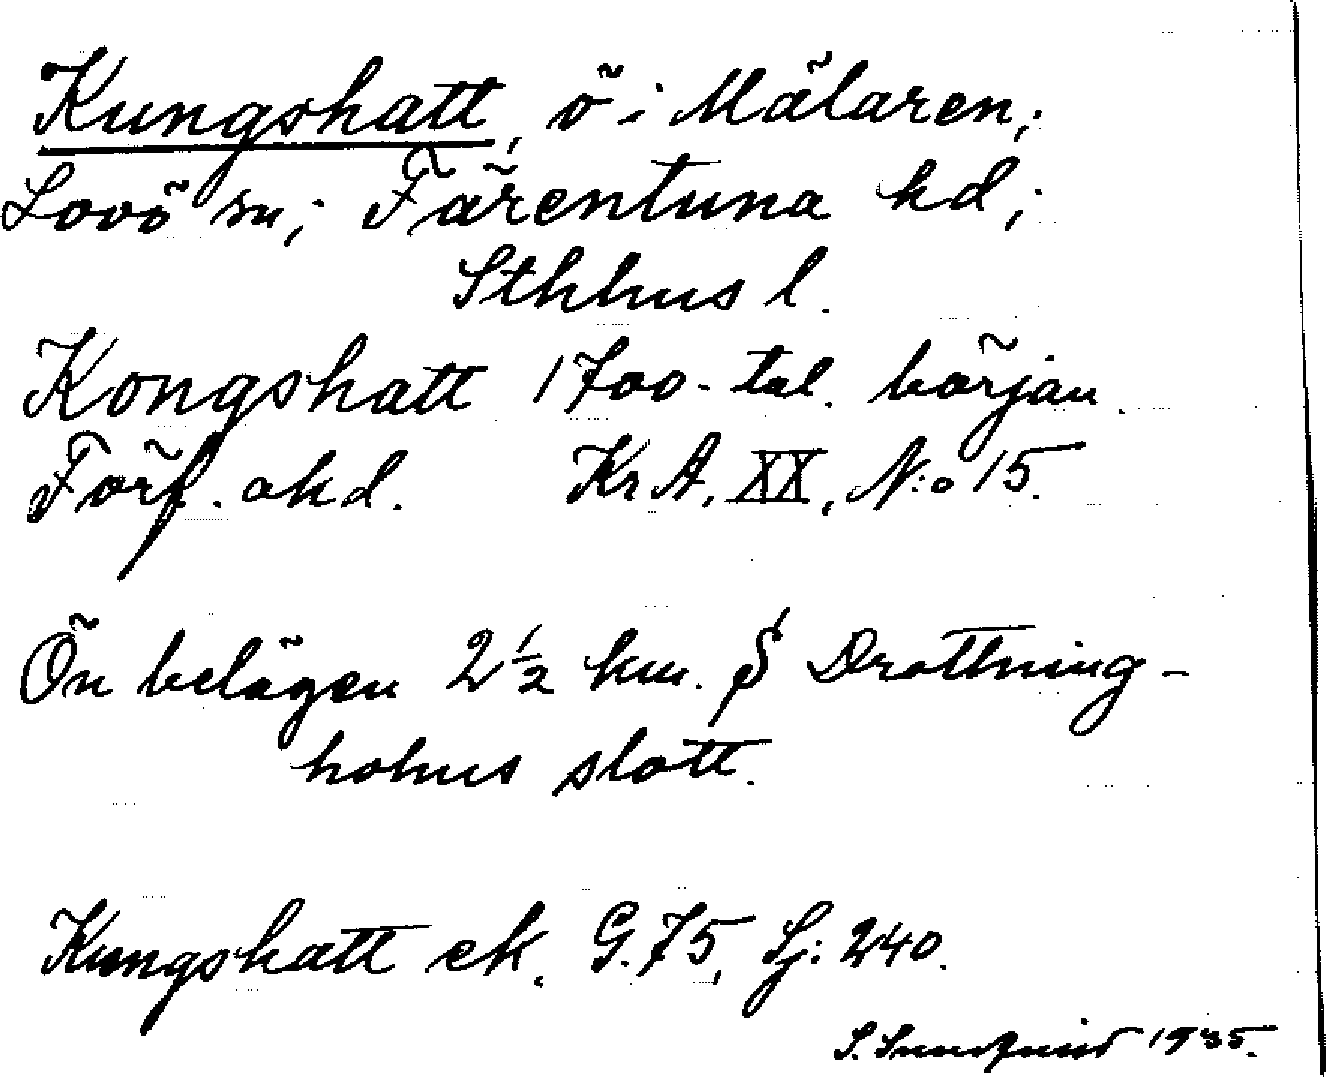 Kungshatt, ö i Mälaren;
Lovö sn; Färentuna hd;
Sthlms l.
Kongshatt 1700-tal. början.
Förf. okd. Kr A, XX, N:o 15.
Ön belägen 2 1/2 km. S Drottning-
holms slott.
Kungshatt ek. G. 75, Lj: 240.
S. 1935.